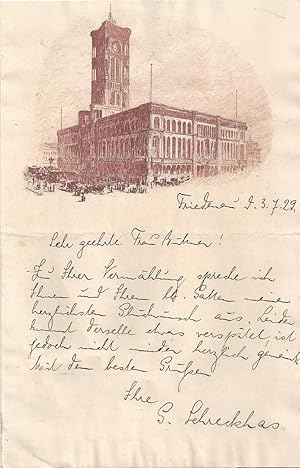 Friedenau d. 3.7.29.
Sehr geehrte Frau Büttner!
Zu Ihrer Vermählung spreche ich
Ihnen und Ihrem lb. Gatten meine
herzlichsten Glückwünsche aus. Leider
kommt derselbe etwas verspätet, ist
jedoch nicht minder herzlich gemeint.
Mit den besten Grüßen
Ihre
S. Schreckhas